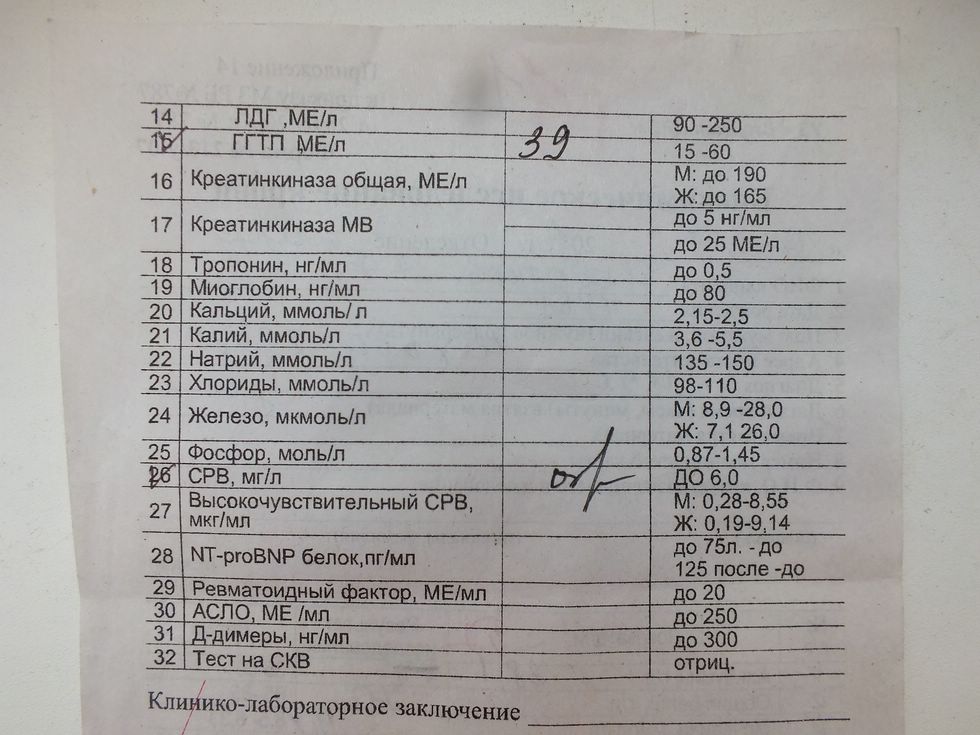 14 ЛДГ ,МЕ/л 90 -250
15 ГГТП МЕ/л 39 15 -60
16 Креатинкиназа общая, МЕ/л М: до 190
Ж: до 165
17 Креатинкиназа МВ до 5 нг/мл
до 25 МЕ/л
18 Тропонин, нг/мл до 0,5
19 Миоглобин, нг/мл до 80
20 Кальций, ммоль/ л 2,15-2,5
21 Калий, ммоль/л 3,6 -5,5
22 Натрий, ммоль/л 135 -150
23 Хлориды, ммоль/л 98-110
24 Железо, мкмоль/л М: 8,9 -28,0
Ж: 7,1 26,0
25 Фосфор, моль/л 0,87-1,45
26 СРВ, мг/л отр ДО 6,0
27 Высокочувствительный СРВ, М: 0,28-8,55
мкг/мл Ж: 0,19-9,14
28 NT-proBNP белок,пг/мл до 75л. - до
125 после -до
29 Ревматоидный фактор, МЕ/мл до 20
30 АСЛО, МЕ /мл до 250
31 Д-димеры, нг/мл до 300
32 Тест на СКВ отриц.
Клинико-лабораторное заключение